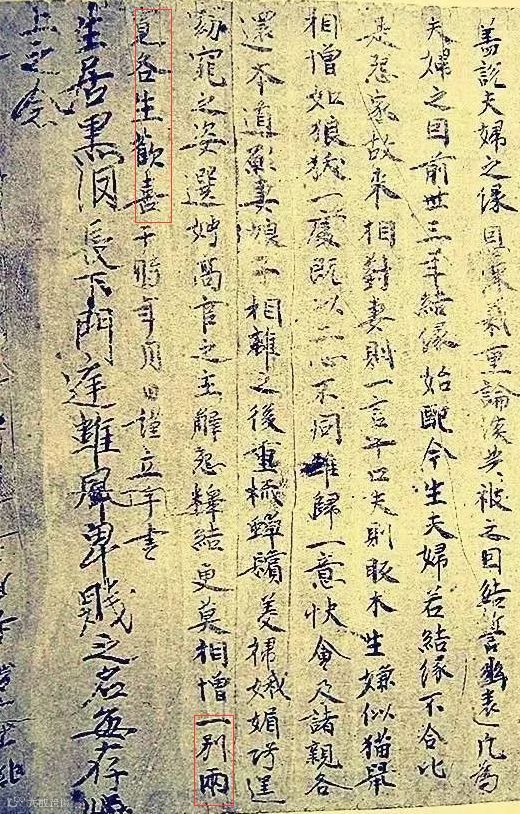 盖説夫婦之緣恩深義重論談共被之因結誓幽遠凡為
夫婦之因前世三年結緣始配今生夫婦若結緣不合比
是怨家故來相對妻則一言十口夫則眅木生嫌似猫鼠
相憎如狼犺一處既以二心不同難歸一意快會及諸親各
還本道願妻娘子相離之後重梳蟬鬢美裙娥媚巧逞
窈窕之姿選娉高官之主解怨釋結更莫相憎一別兩
寬各生歡喜于時年月日謹立手書
生居黑淚長下門庭難風卑賤之名無存
上之念